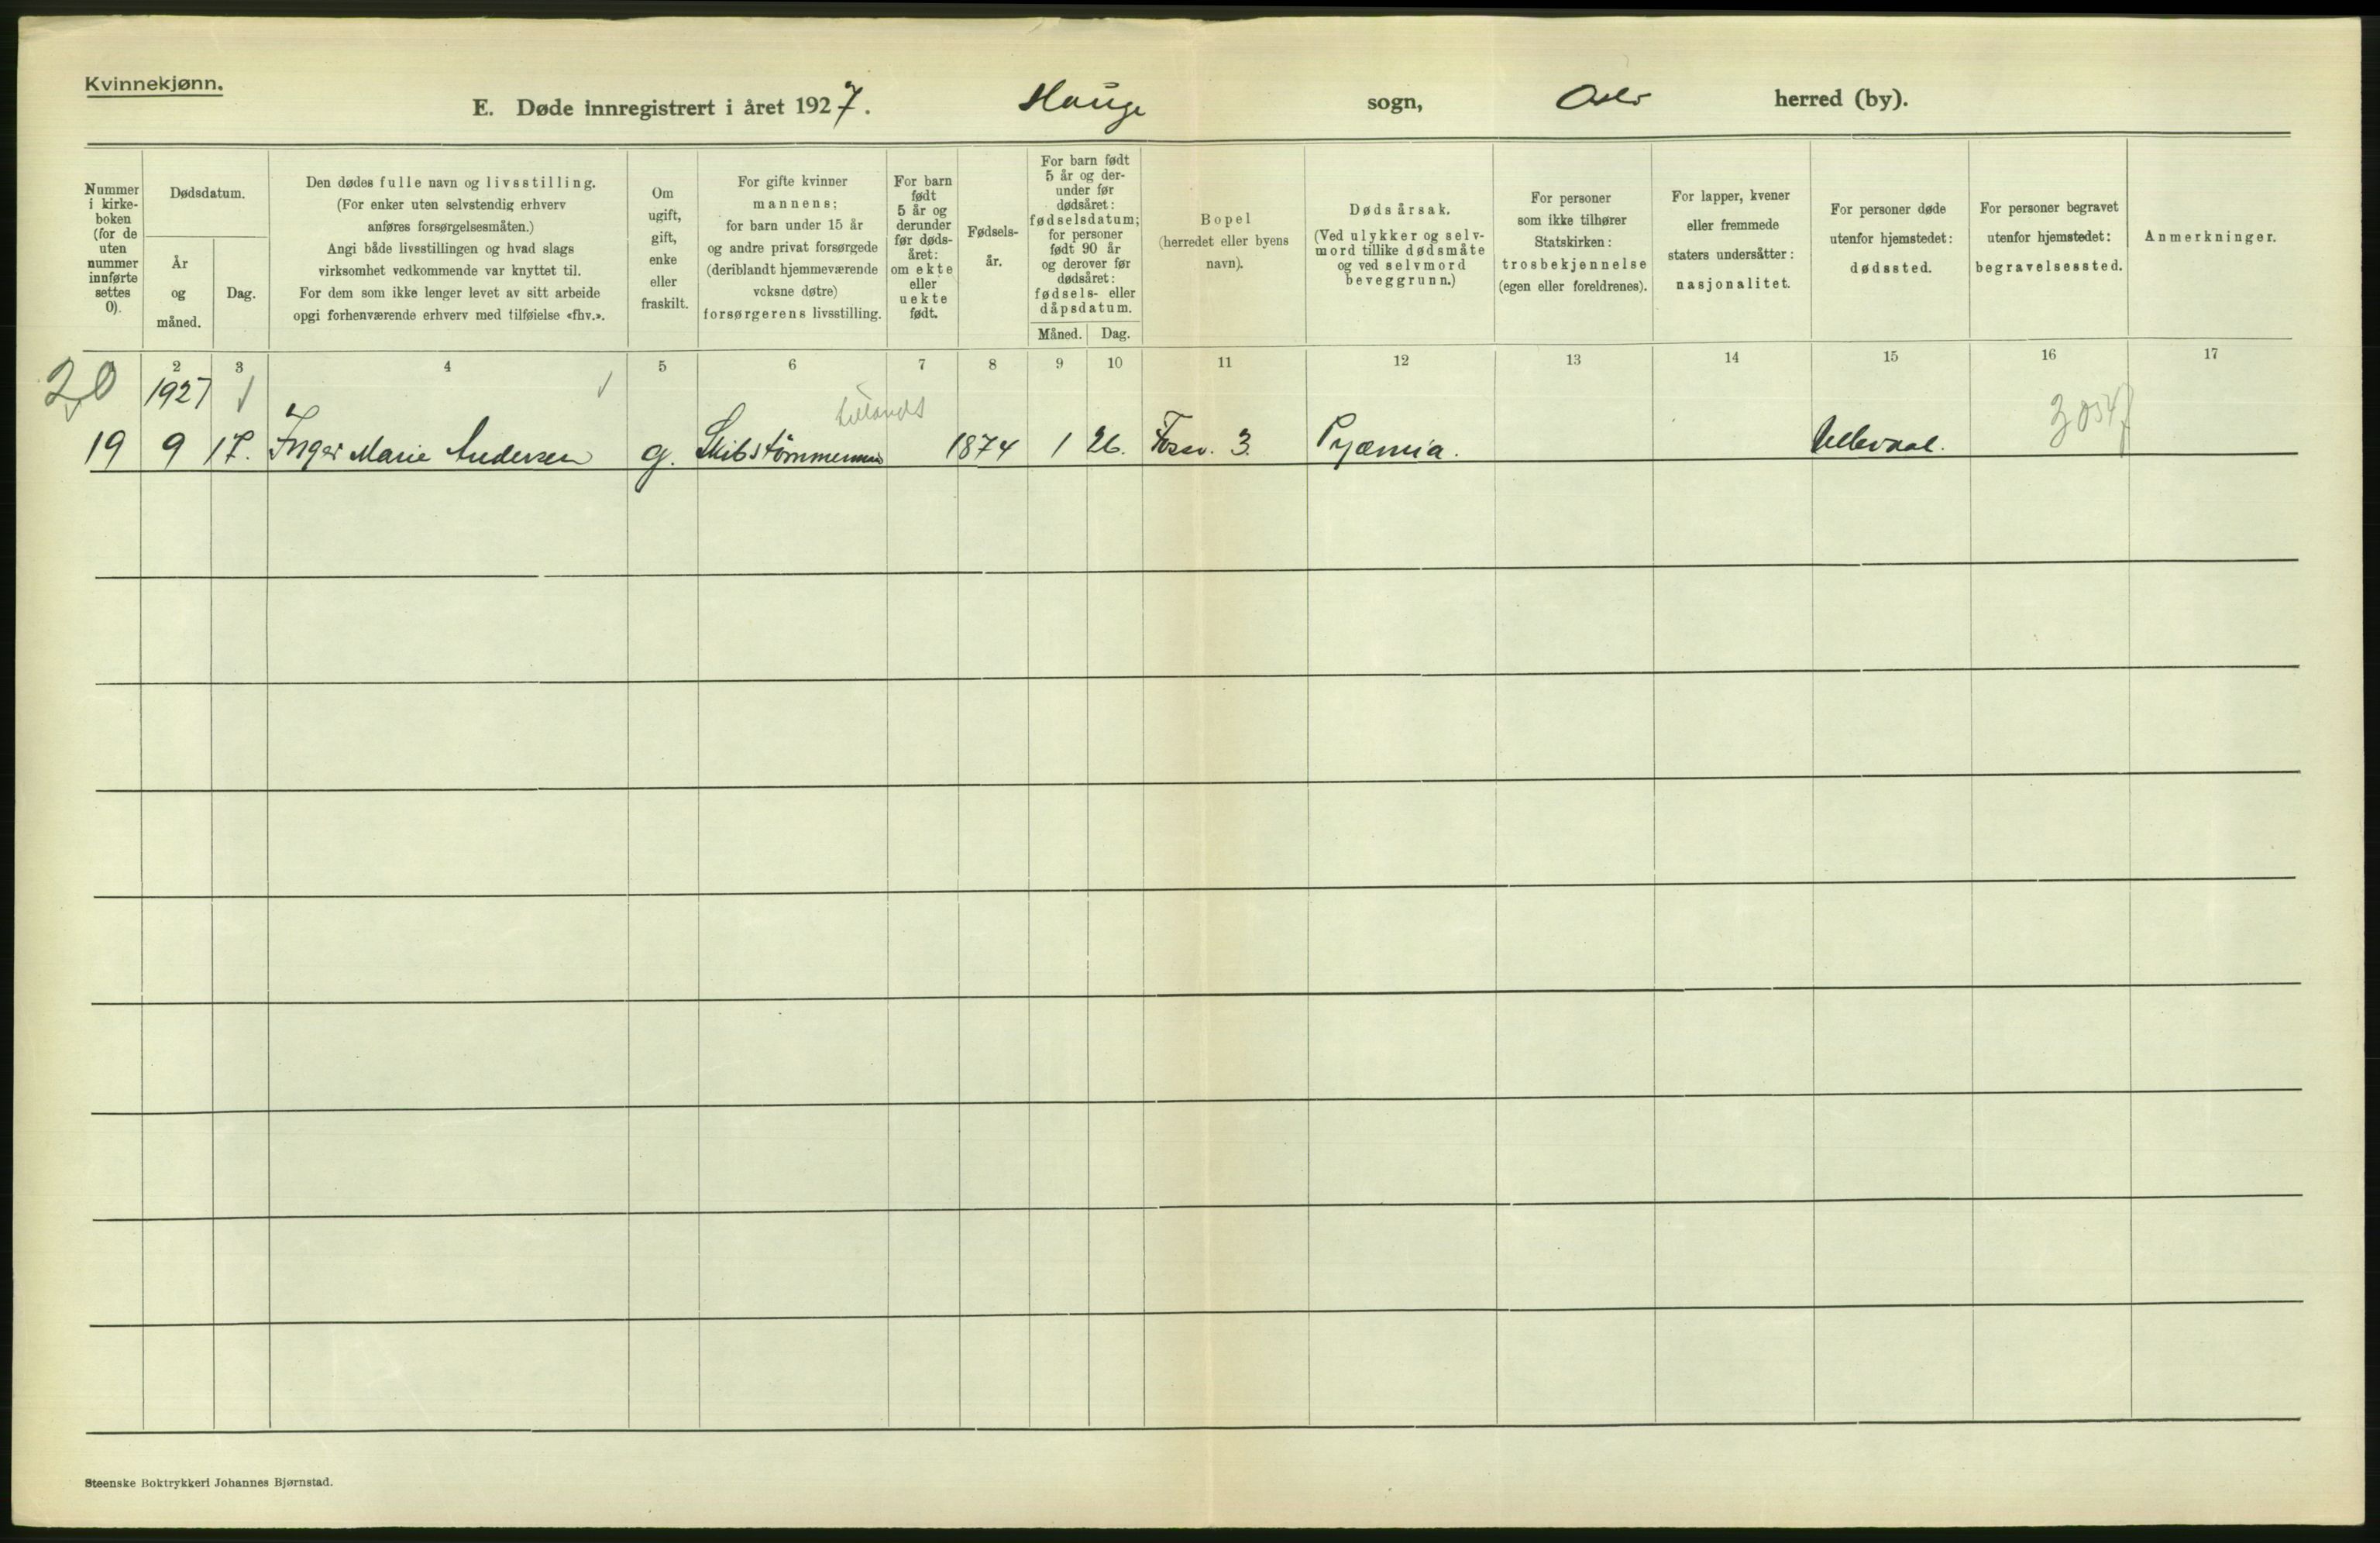 Kvinnekjønn.
E. Døde innregistrert i året 1927. Hauge sogn, Oslo herred (by).
Nummer
i kirke-
boken
(for de
uten
nummer
innførte
settes
0).
Dødsdatum.
År
og
måned.
Dag.
Den dødes fulle navn og livsstilling.
(For enker uten selvstendig erhverv
anføres forsørgelsesmåten.)
Angi både livsstillingen og hvad slags
virksomhet vedkommende var knyttet til.
For dem som ikke lenger levet av sitt arbeide
opgi forhenværende erhverv med tilføielse «fhv.».
Om
ugift,
gift,
enke
eller
fraskilt.
For gifte kvinner
mannens;
for barn under 15 år
og andre privat forsørgede
(deriblandt hjemmeværende
voksne døtre)
forsørgerens livsstilling.
For barn
født
5 år og
derunder
før døds-
året:
om ekte
eller
uekte
født.
Fødsels-
år.
For barn født
5 år og der-
under før
dødsåret:
fødselsdatum;
for personer
født 90 år
og derover før
dødsåret:
fødsels- eller
dåpsdatum.
Måned. Dag.
Bopel
(herredet eller byens
navn).
Dødsårsak.
(Ved ulykker og selv-
mord tillike dødsmåte
og ved selvmord
beveggrunn.)
For personer
som ikke tilhører
Statskirken:
trosbekjennelse
(egen eller foreldrenes).
For lapper, kvener
eller fremmede
staters undersåtter:
nasjonalitet.
For personer døde
utenfor hjemstedet:
dødssted.
For personer begravet
utenfor hjemstedet:
begravelsessted.
Anmerkninger.
2 3 4 5 6 7 8 9 10 11 12 13 14 15 16 17
20 1927
19 9 17. Inger Marie Andersen g. Skibstømmermann 1874 1 26. Fossv. 3. Pyæmia. Ullevaal.
Steenske Boktrykkeri Johannes Bjørnstad.